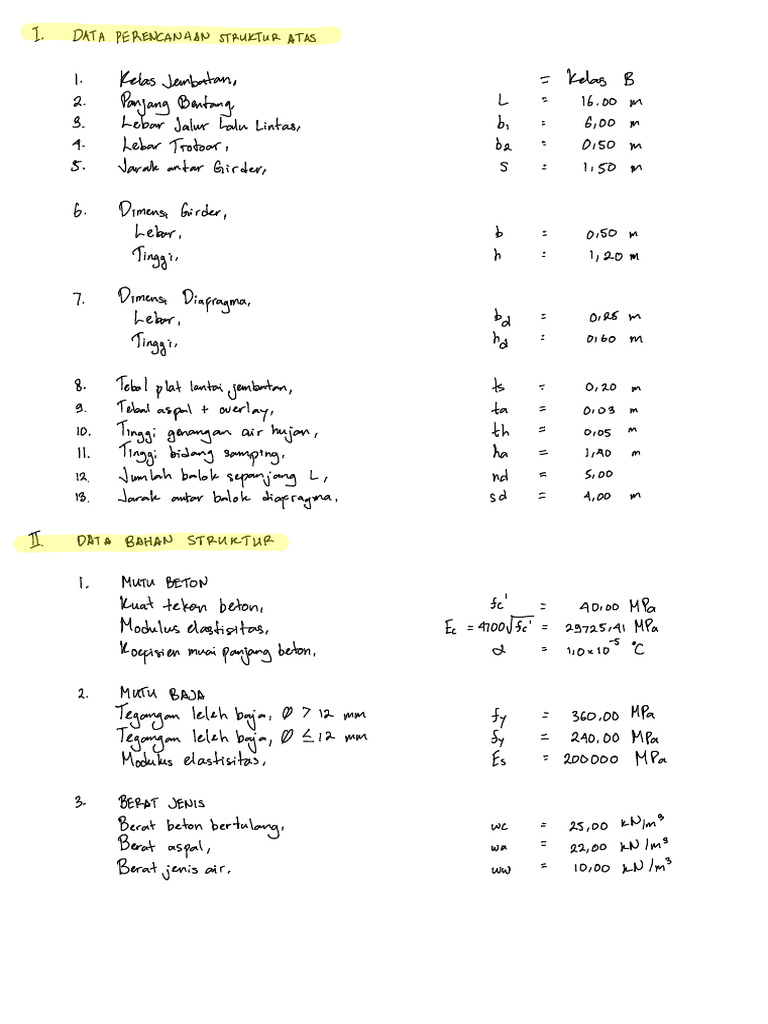 I. DATA PERENCANAAN STRUKTUR ATAS
1. Kelas Jembatan, = Kelas B
2. Panjang Bentang L = 16.00 m
3. Lebar Jalur Lalu Lintas, b1 = 6,00 m
4. Lebar Trotoar, b2 = 0,50 m
5. Jarak antar Girder, S = 1,50 m
6. Dimensi Girder,
Lebar, b = 0,50 m
Tinggi, h = 1,20 m
7. Dimensi Diafragma,
Lebar, bd = 0,25 m
Tinggi, hd = 0,60 m
8. Tebal plat lantai jembatan, ts = 0,20 m
9. Tebal aspal + overlay, ta = 0,03 m
10. Tinggi genangan air hujan, th = 0,05 m
11. Tinggi bidang samping, ha = 1,40 m
12. Jumlah balok sepanjang L, nd = 5,00
13. Jarak antar balok diafragma, sd = 4,00 m
II. DATA BAHAN STRUKTUR
1. MUTU BETON
Kuat tekan beton, fc' = 40,00 MPa
Modulus elastisitas, Ec = 4700√fc' = 29725,41 MPa
Koepisien muai panjang beton, α = 1,0 × 10⁻⁵ °C
2. MUTU BAJA
Tegangan leleh baja, Ø > 12 mm fy = 360,00 MPa
Tegangan leleh baja, Ø ≤ 12 mm fy = 240,00 MPa
Modulus elastisitas, Es = 200000 MPa
3. BERAT JENIS
Berat beton bertulang, wc = 25,00 kN/m³
Berat aspal, wa = 22,00 kN/m³
Berat jenis air, ww = 10,00 kN/m³